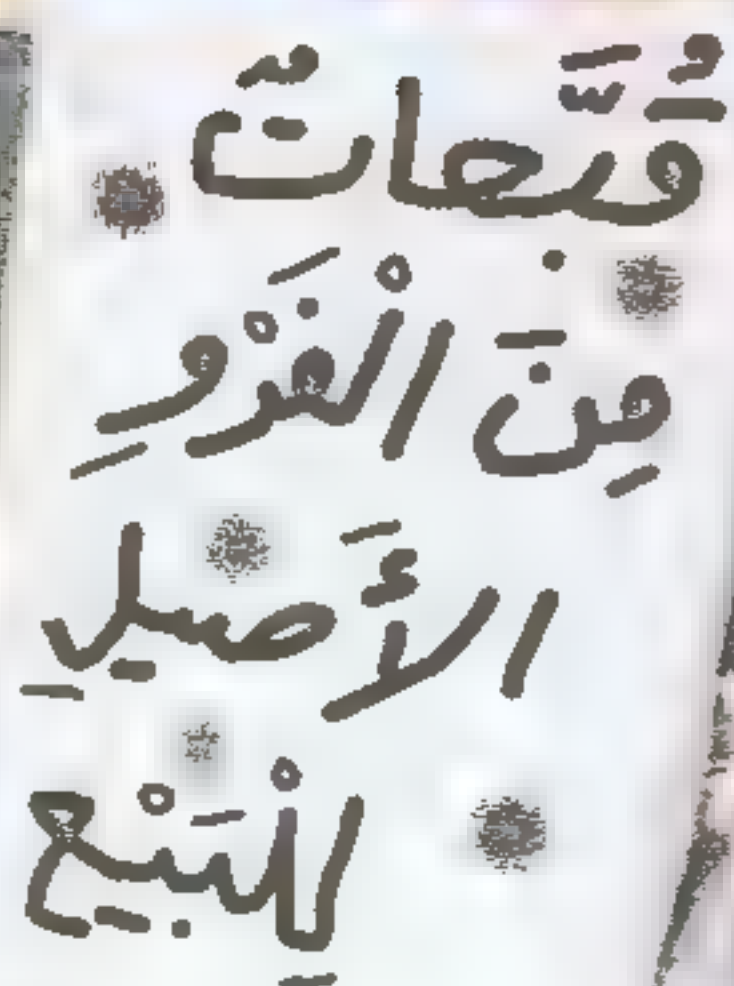 قُبَّعاتٌ
مِنَ الْفَرْوِ
الأَصيلِ
لِلْبَيْعِ